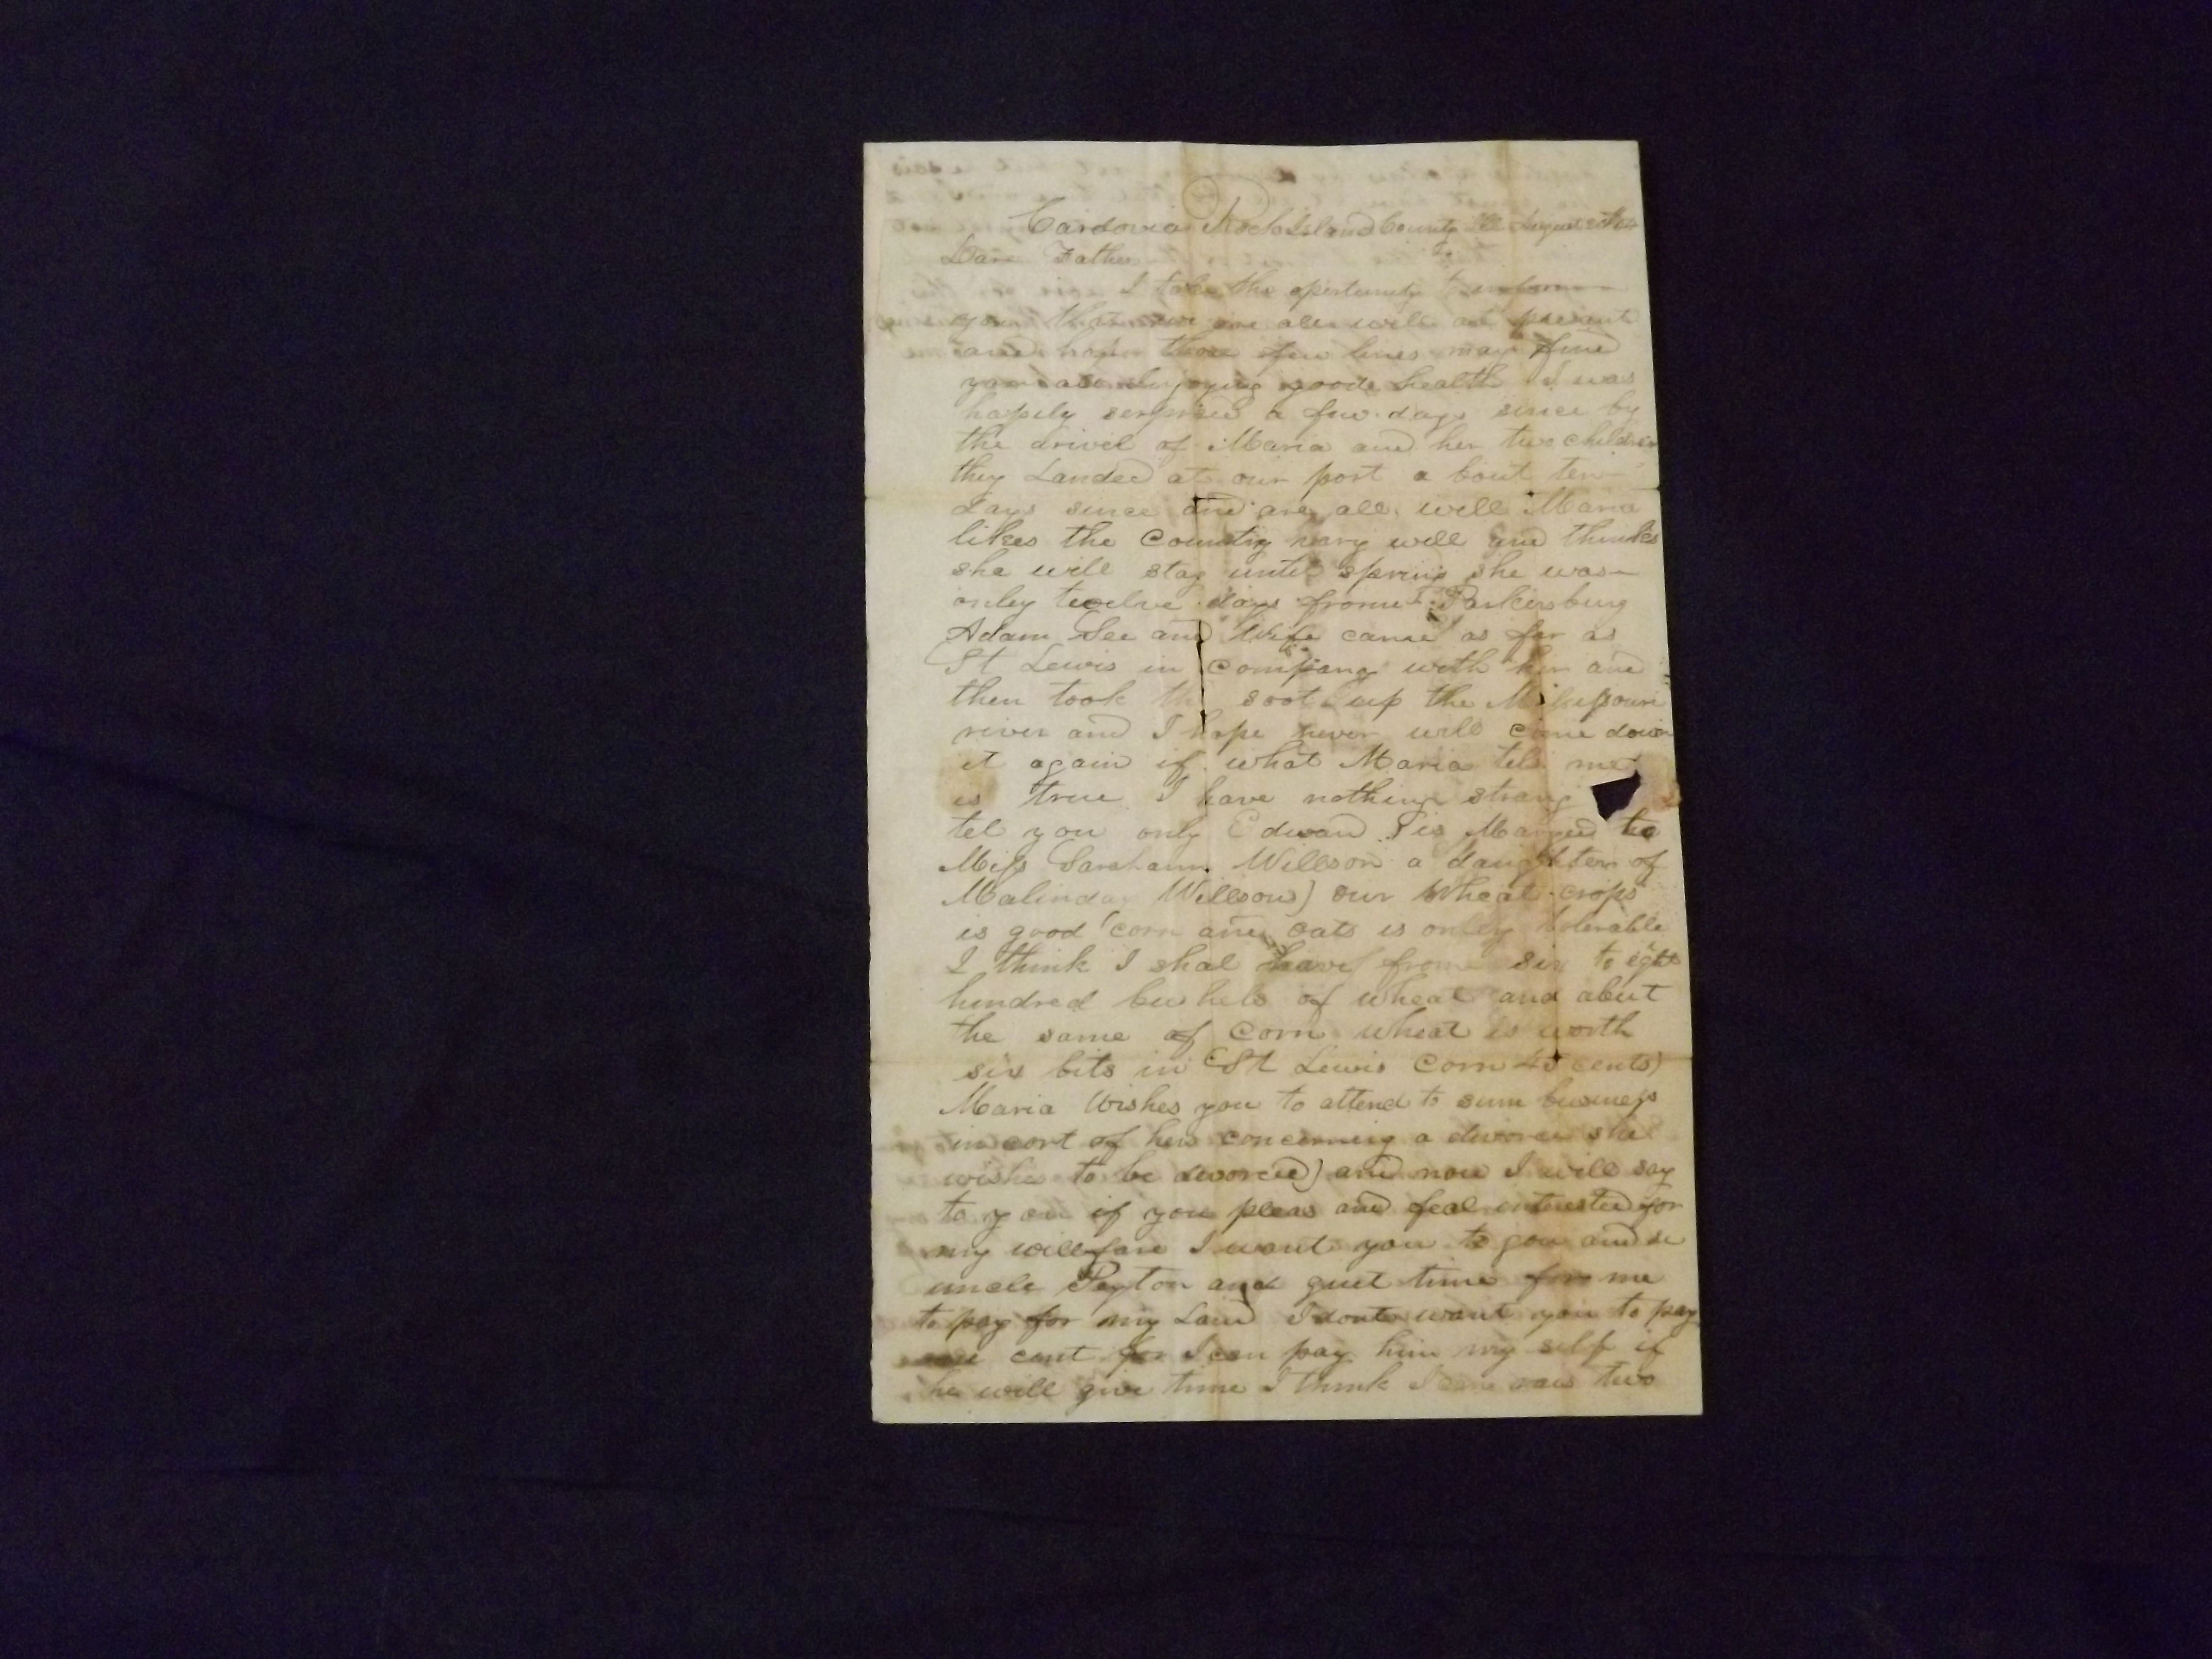 Cardovia Rock Island County Ill August
Dare Father
I take the opertunity to inform
you that we are all well at presant
and hope those few lines may find
you all enjoying good health I was
hapily serprised a few days since by
the arivel of Maria and her two children
they Landed at our port a bout ten
days since and are all well Maria
likes the Country vary well and thinks
she will stay until spring she was
onley twelve days from Parkersburg
Adam See and Wife came as far as
St Lewis in company with her and
then took th soot up the Missouri
river and I hope never will come down
it again if what Maria tels me
is true I have nothing strang
tel you only Edward is Maryed to
Miss Sarahann Willson a daughter of
Malinday Willson) our Wheat crops
is good corn and oats is onley tolerable
I think I shal have from six to eght
hundred bushels of wheat and abut
the same of corn wheat is worth
six bits in St Lewis Corn 45 cents)
Maria Wishes you to attend to sum business
in cort of hers concerning a divorce she
wishes to be divorced) and now I will say
to you if you pleas and feal intersted for
my willfare I want you to gow and se
uncle Peyton and guet time for me
to pay for my Land I dont want you to pay
cent for I can pay him my self if
he will give time I think I can rais two